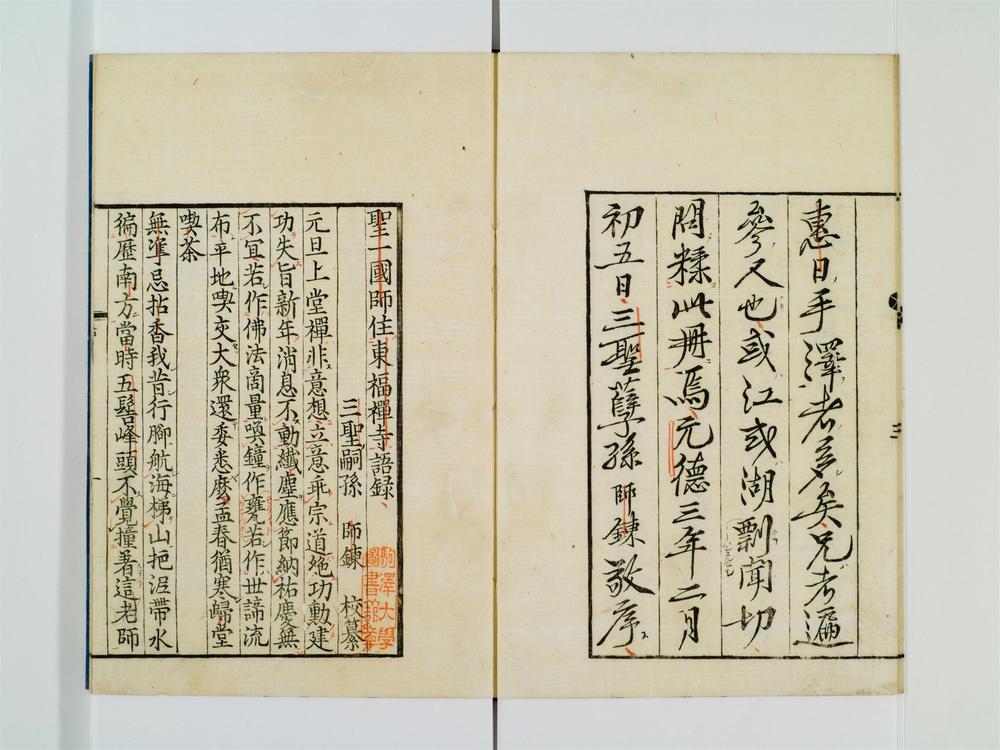 惠日手澤者多矣兄者遍
參人也或江或湖剽聞切
問糅此冊焉元德三年二月
初五日三聖孽孫師鍊敬序
三
聖一國師住東福禪寺語録
三聖嗣孫 師鍊 校纂
元旦上堂禪非意想立意乖宗道絶功勳建
功失旨新年消息不動纖塵應節納祐慶無
不宜若作佛法商量喚鐘作甕若作世諦流
布平地喫交大衆還委悉麽孟春猶寒歸堂
喫茶
無準忌拈香我昔行脚航海梯山拕泥帶水
徧歴南方當時五髻峰頭不覺撞著這老師
駒澤大學
圖書館章